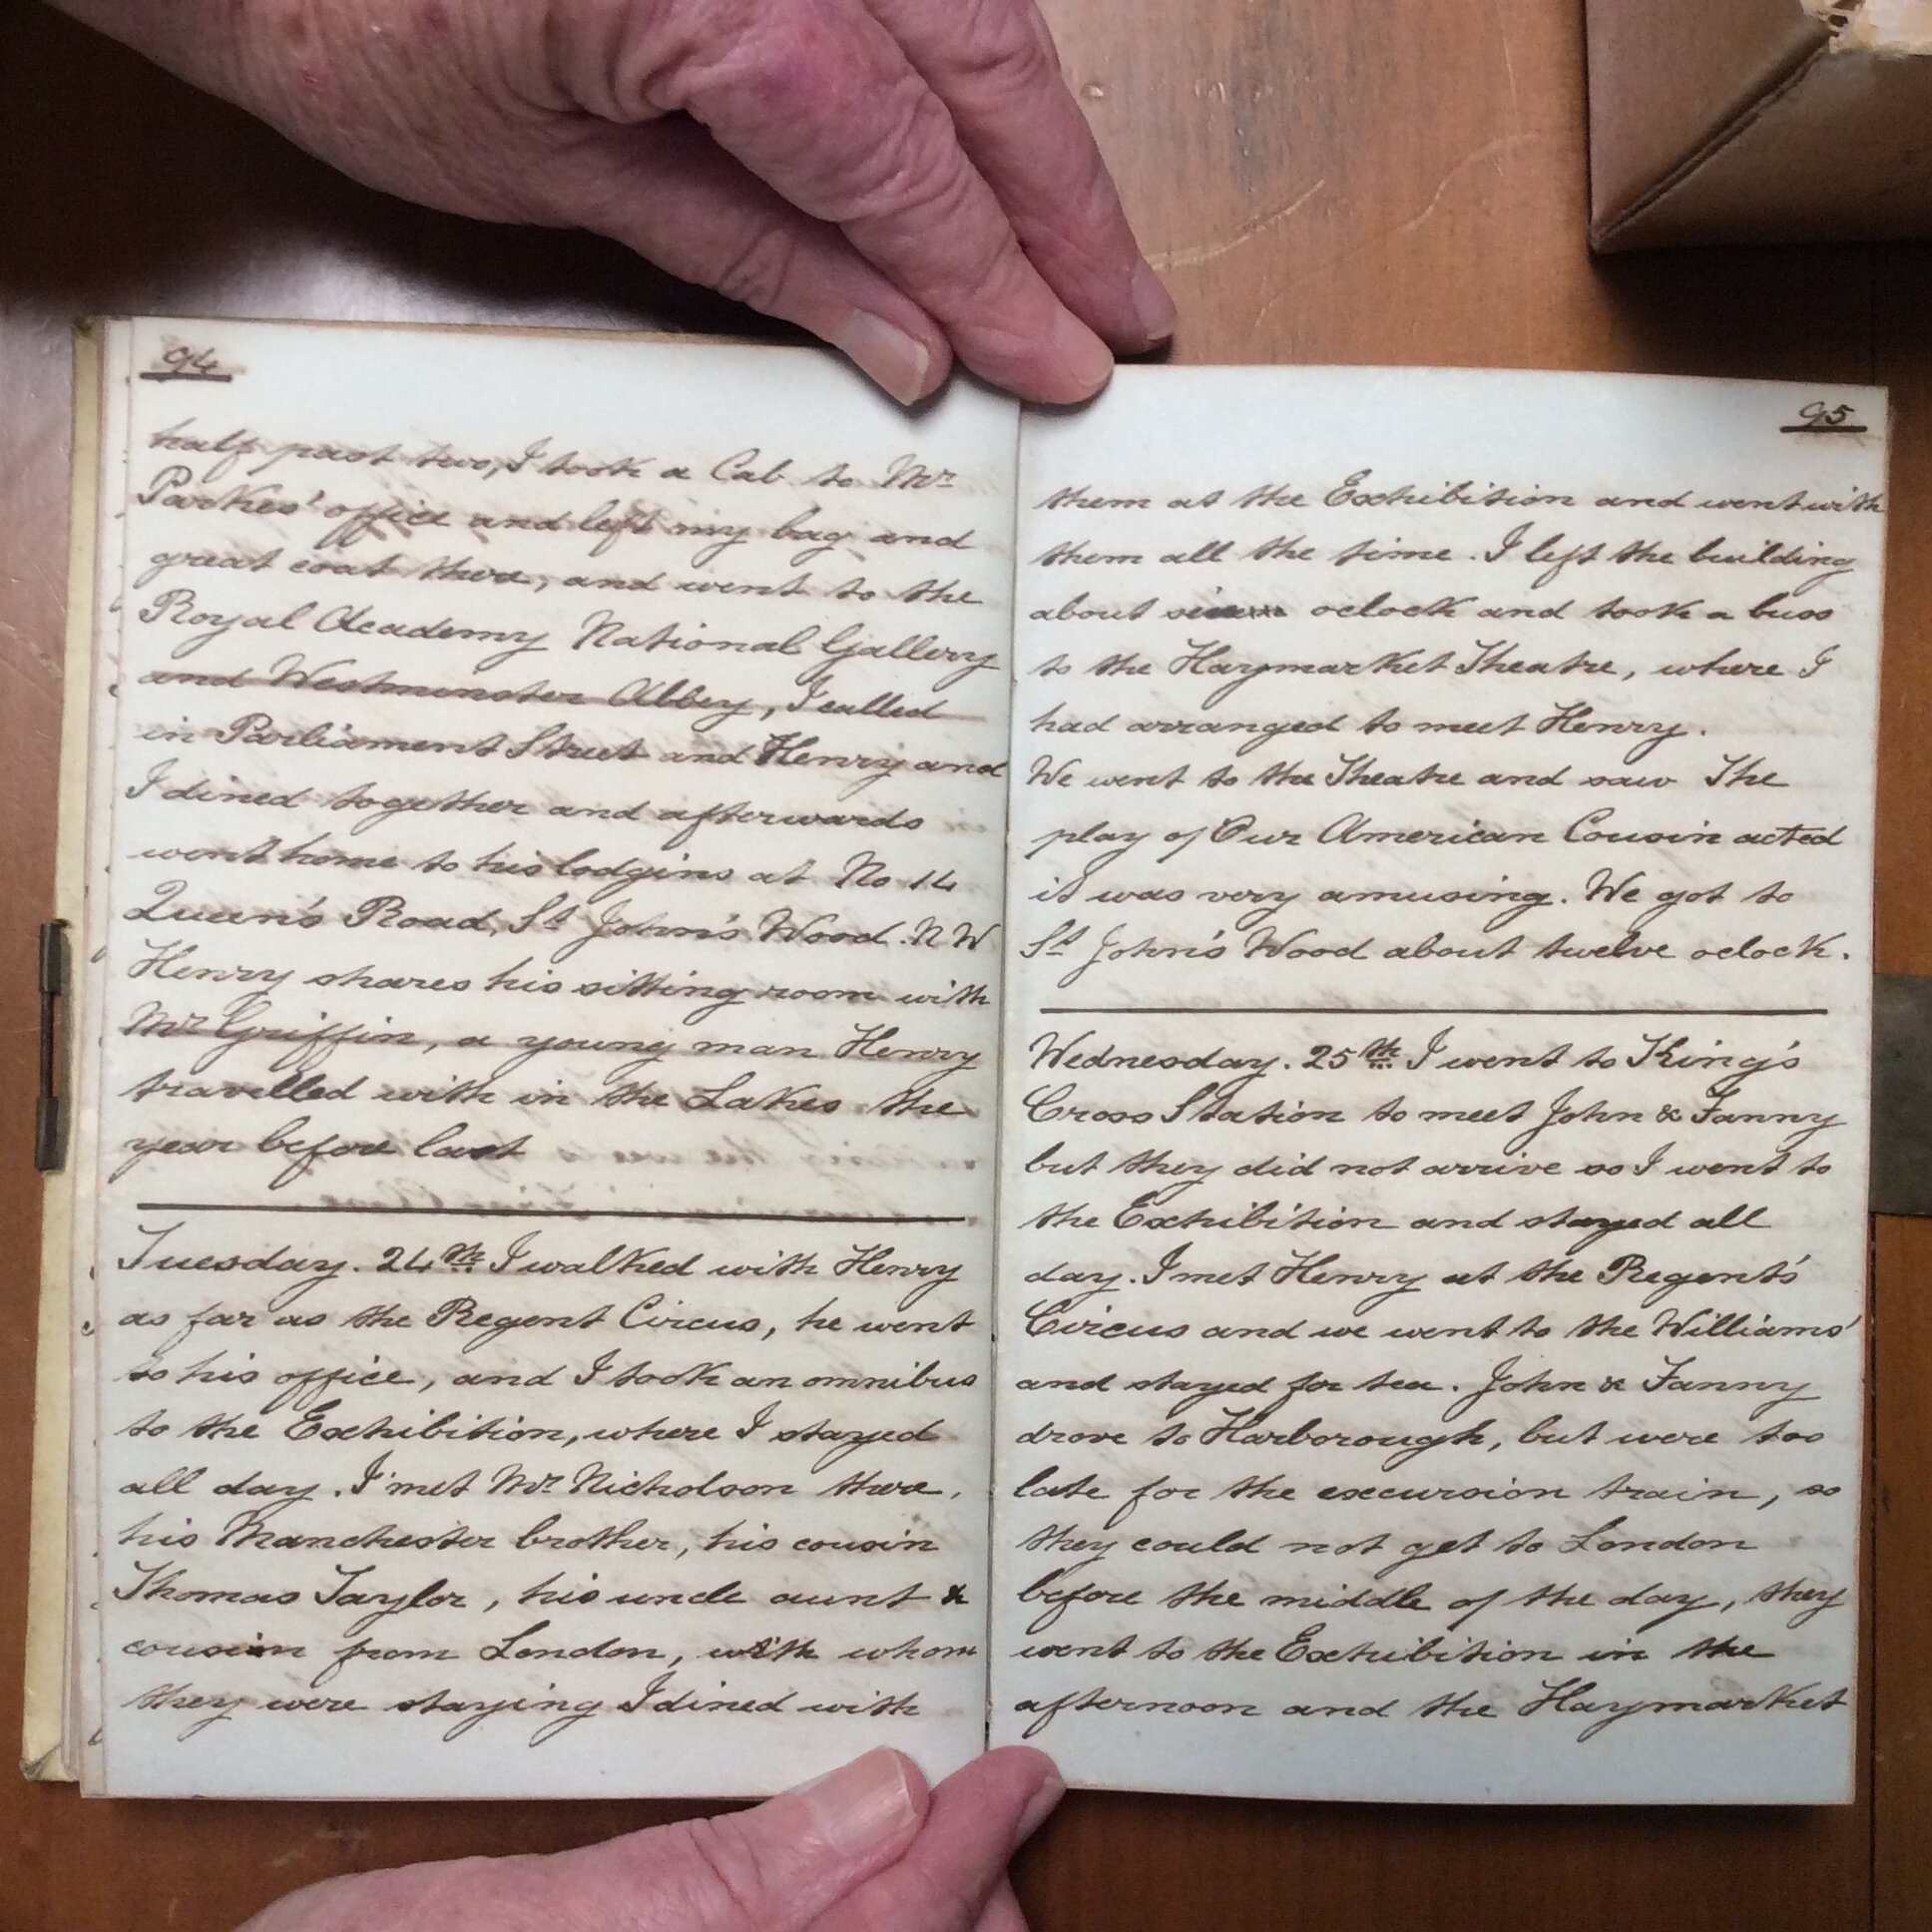 94
half past two, I took a Cab to Mr
Parkes' office and left my bag and
great coat there, and went to the
Royal Academy National Gallery
and Westminster Abbey, I called
in Parliament Street and Henry and
I dined together and afterwards
went home to his lodgins at No 14
Queen's Road, St John's Wood. N W
Henry shares his sitting room with
Mr Griffin, a young man Henry
travelled with in the Lakes the
year before last
Tuesday. 24th I walked with Henry
as far as the Regent Circus, he went
to his office, and I took an omnibus
to the Exhibition, where I stayed
all day. I met Mr Nicholson there,
his Manchester brother, his cousin
Thomas Taylor, his uncle aunt &
cousin from London, with whom
they were staying I dined with
95
them at the Exhibition and went with
them all the time. I left the building
about oclock and took a buss
to the Haymarket Theatre, where I
had arranged to meet Henry.
We went to the Theatre and saw The
play of Our American Cousin acted
it was very amusing. We got to
St John's Wood about twelve oclock.
Wednesday. 25th I went to King's
Cross Station to meet John & Fanny
but they did not arrive so I went to
the Exhibition and stayed all
day. I met Henry at the Regent's
Circus and we went to the Williams'
and stayed for tea. John & Fanny
drove to Harborough, but were too
late for the excursion train, so
they could not get to London
before the middle of the day, they
went to the Exhibition in the
afternoon and the Haymarket